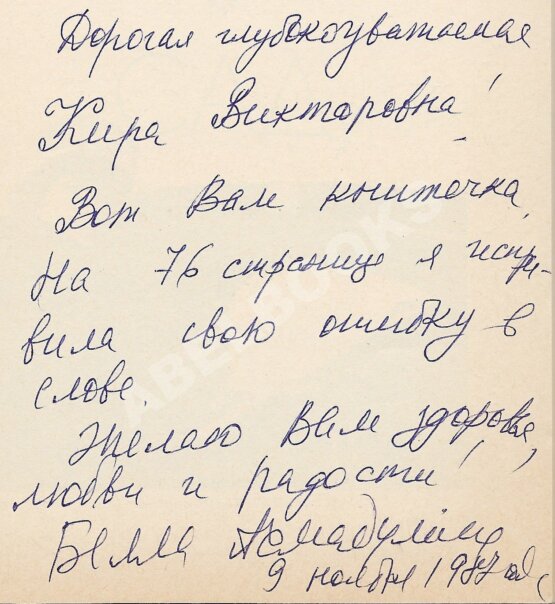 Дорогая глубокоуважаемая
Кира Викторовна!
Вот Вам книжечка,
На 76 странице я испра-
вила свою ошибку в
слове.
Желаю Вам здоровья,
любви и радости!
Белла Ахмадулина
9 ноября 1987 года
ABELBOOKS